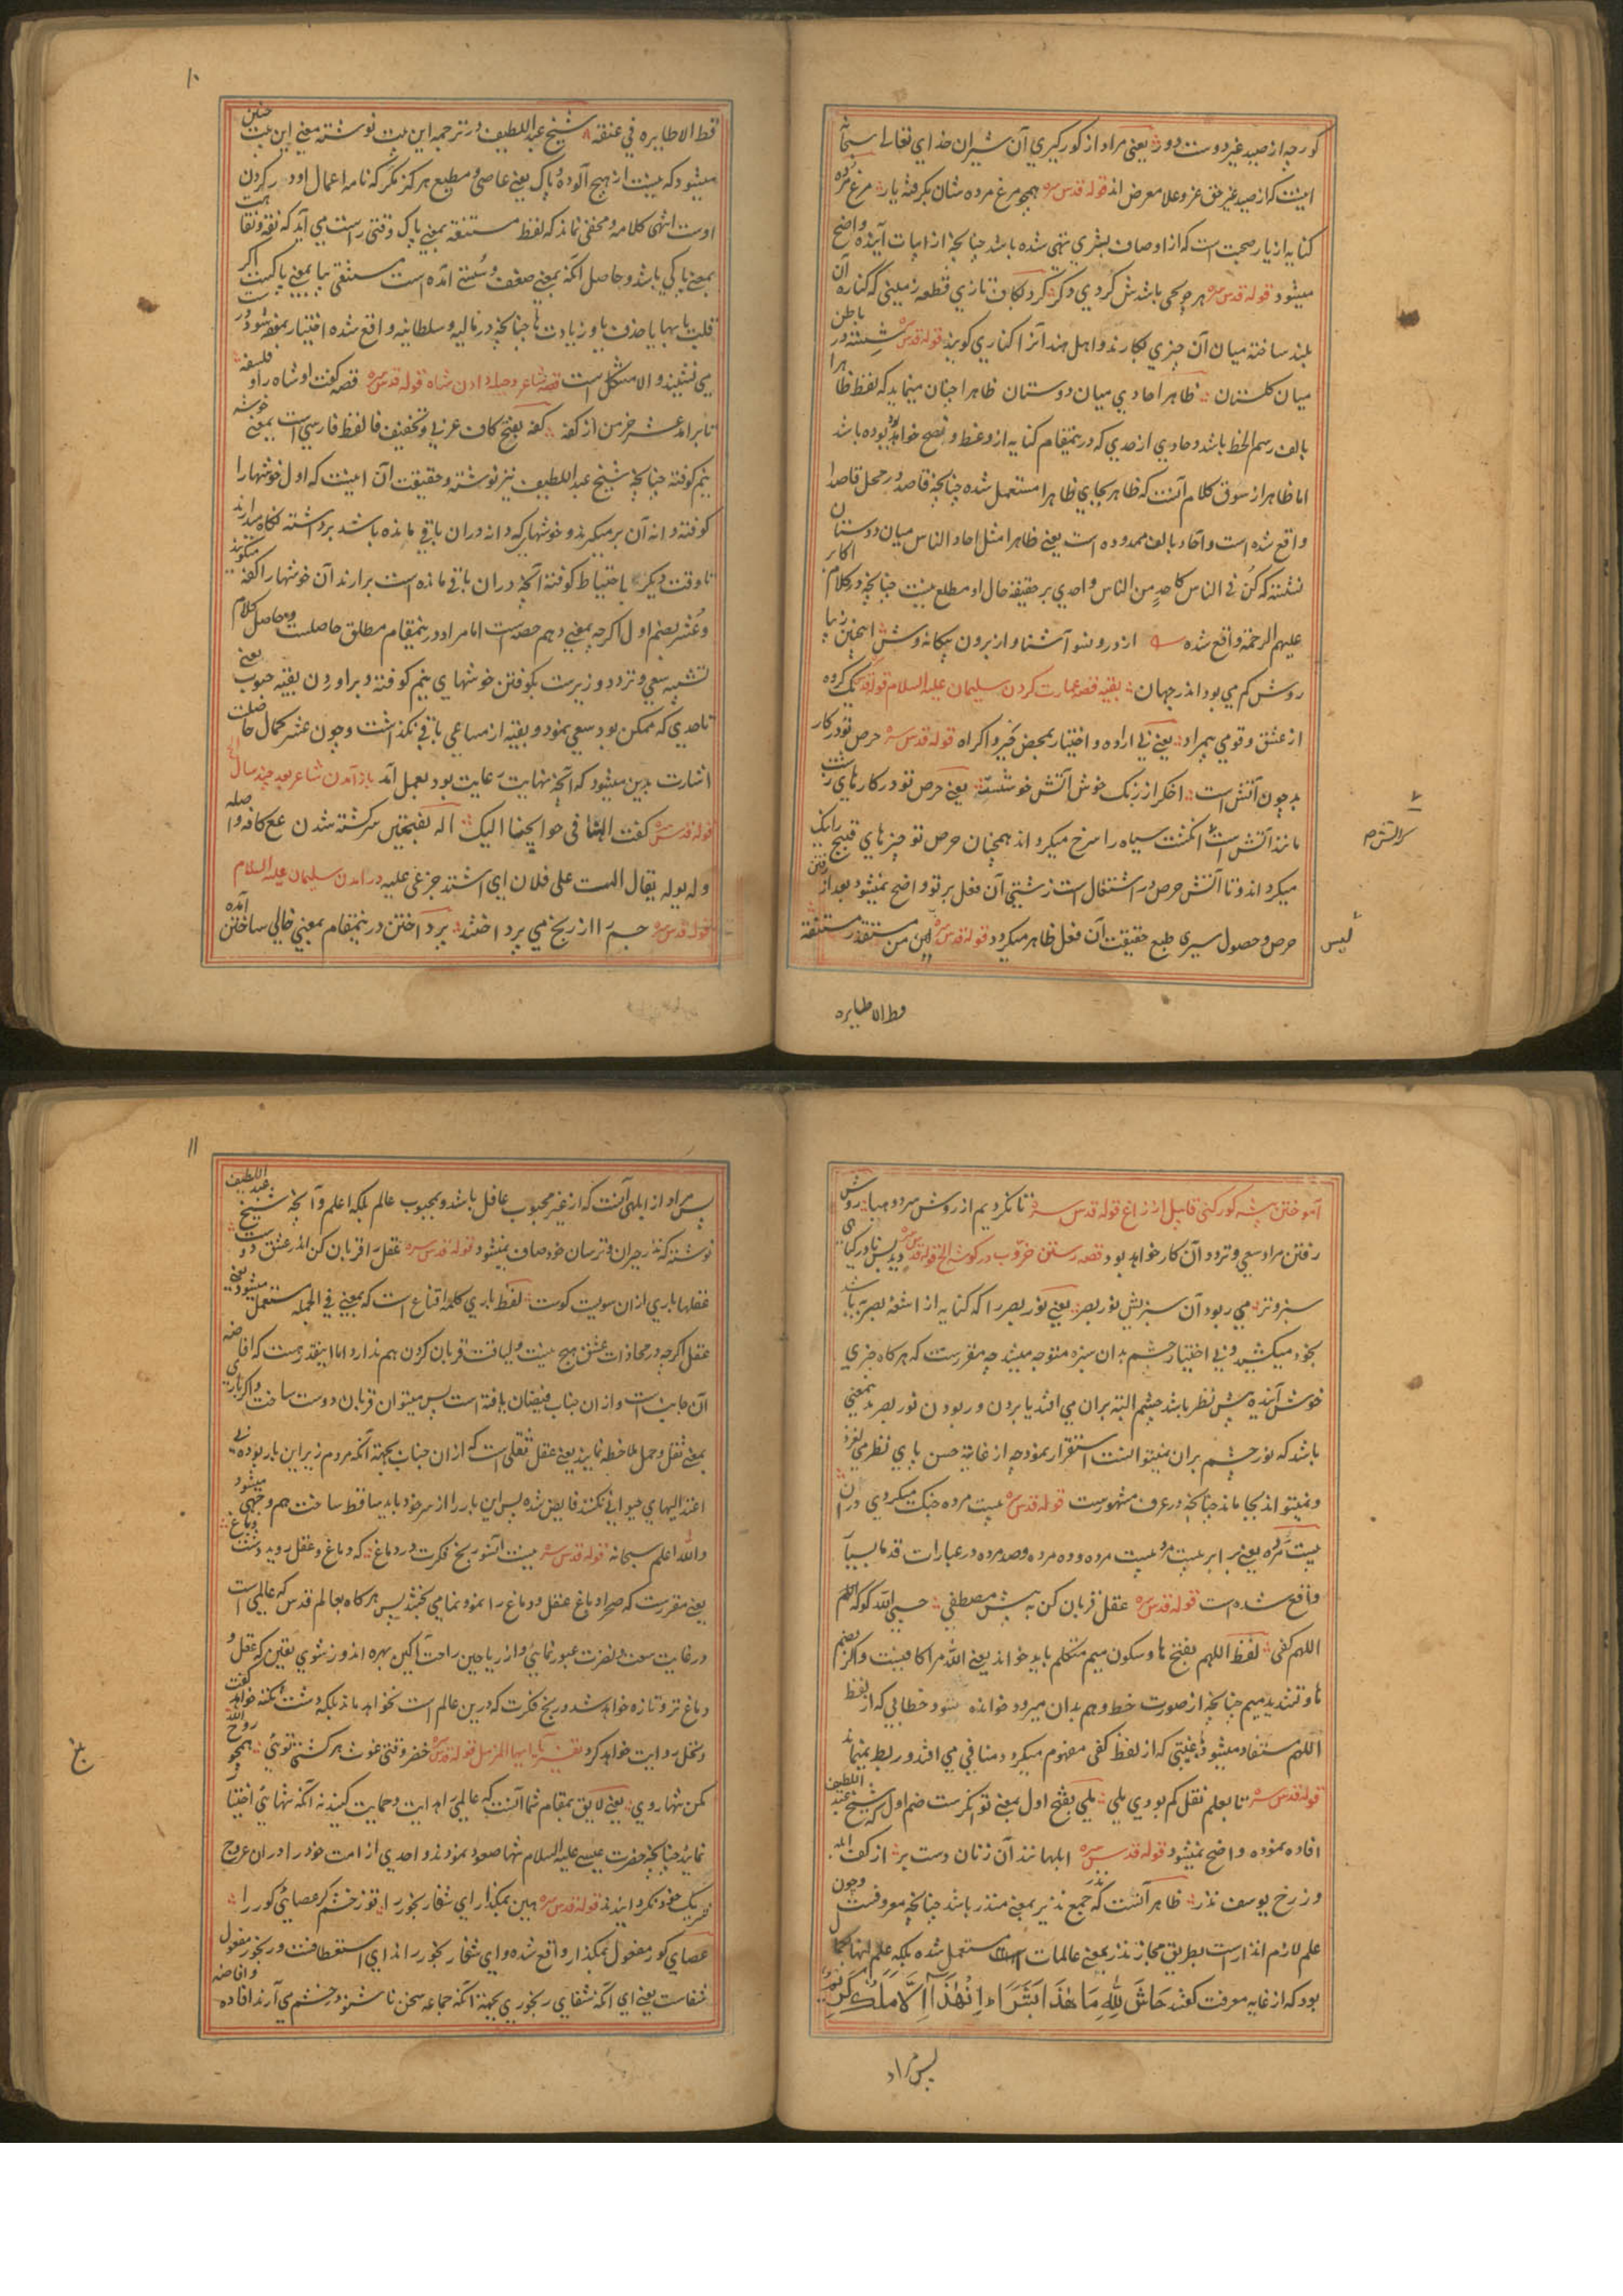 کورچه از صید غیر دوست دور یعنی مراد از کورگیری آن شیران خدای تعالی سبحانه
اینست که از صید غیر حق عز و علا معرض اند قوله قدس سره همچو مرغ مرده شان بگرفته یار مرغ مرده
کنایه از یار صحبت است که از اوصاف بشری تهی شده باشد چنانچه از ابیات آینده واضح
میشود قوله قدس سره هر چویی باشدش کردی دگر کرد بکاف تازی قطعه زمینی که کناره آن
بلند ساخته میان آن چیزی بکارند و اهل هند آنرا کناری گویند قوله قدس سره شسته در باطن
میان گلستان ظاهرا حادی میان دوستان ظاهرا چنان مینماید که لفظ ظاهرا
بالف رسم الخط باشد و حادی از حدی که درینمقام کنایه از وعظ و نصح خواهد بود باشد
اما ظاهر از سوق کلام آنست که ظاهر بجای ظاهرا مستعمل شده چنانچه قاصد در محل قاصدا
واقع شده است و آحاد بالف ممدوده است یعنی ظاهرا مثل احاد الناس میان دوستان
نشسته که کن فی الناس کاحد من الناس و احدی بر حقیقة حال او مطلع نیست چنانچه در کلام اکابر
علیهم الرحمة واقع شده از درون شو آشنا و از برون بیگانه وش اینچنین زیبا
روش کم می بود اندر جهان بقیه قصه عمارت کردن سلیمان علیه السلام قوله قدس یک گروه
از عشق و قومی بیمراد یعنی بی اراده و اختیار بمحض جبر و اکراه قوله قدس سره حرص تو در کار
بد چون آتش است اخگر از رنگ خوش آتش خوشست یعنی حرص تو در کارهای زشت
مانند آتش است انگشت سیاه را سرخ میگرداند همچنان حرص تو چیزهای قبیح را نیک
میگرداند و تا آتش حرص در اشتغال است زشتی آن فعل بر تو واضح نمیشود بعد از رفتن
حرص و حصول سیری طبع حقیقت آن فعل ظاهر میگردد قوله قدس سره لیس من مستقذر مستنقه
لیس
قط الا طایره
۱۰
قط الا طایره فی عنقه شیخ عبد اللطیف در ترجمه این بیت نوشته معنی این بیت چنین
میشود که نیست از هیچ آلوده و پاک یعنی عاصی و مطیع هرگز مگر که نامه اعمال او در گردن
اوست انتهی کلامه و مخفی نماند که لفظ مستنقه بمعنی پاک وقتی راست می آید که نقه و نقا
بمعنی پاکی باشد و حاصل آنکه بمعنی ضعف و سستی آمده است مستنقی بیا بمعنی پاکیست اگر
قلب یا بها یا حذف یا و زیادت ها چنانچه در مالیه و سلطانیه واقع شده اختیار بمعنی شود
می نشیند و الا مشکل است قصه شاعر و صله دادن شاه قوله قدس سره قصه گفت او شاه را و فلسفه
تا برامد عشر خرمن از کفه کفه بفتح کاف عربی و تخفیف فا لفظ فارسی است بمعنی خوشه
نیم کوفته چنانچه شیخ عبد اللطیف نیز نوشته و حقیقت آن اینست که اول خوشها را
کوفته دانه آن برمیگیرند و خوشهای که دانه دران باقی مانده باشد برداشته نگاه میدارند
تا وقت دیگر باحتیاط کوفته آنچه دران باقی مانده است برارند آن خوشها را کفه میگویند
و عشر بضم اول اگرچه بمعنی دهم حصه است اما مراد درینمقام مطلق حاصلست و حاصل کلام
تشبیه سعی و تردد وزیرست بکوفتن خوشهای نیم کوفته و براوردن بقیه حبوب یعنی
تا حدی که ممکن بود سعی نمود و بقیه از مساعی باقی نگذاشت و چون عشر کمال حاصلت
اشارت بدین میشود که آنچه نهایت غایت بود بعمل آمد باز آمدن شاعر بعد چند سال الخ
قوله قدس سره گفت الهنا فی حوایجنا الیک اله بفتحتین سرگشته شدن مع کافه و صله
وله یوله یقال الهت علی فلان ای اشتد جزعی علیه در آمدن سلیمان علیه السلام
قوله قدس سره جسم را از رنج می پرداختند پرداختن درینمقام بمعنی خالی ساختن آمده
آموختن پیشه گورکنی قابیل از زاغ قوله قدس سره تا نکردیم از روش مرد و میا روش
رفتن مراد سعی و تردد آن کار خواهد بود قصه رستن خروب در گوشه الخ قوله قدس سره دید بس نادر گیاهی
سبز و تر می ربود آن سبزیش نور بصر یعنی نور بصر را که کنایه از اشعه بصریه باشد
بخود میکشید و بی اختیار چشم بدان سبزه متوجه میشد چه مقررست که هرگاه چیزی
خوش آینده پیش نظر باشد چشم البته بران می افتد یا بردن و ربودن نور بصر بدینمعنی
باشد که نور چشم بران نمیتوانست استقرار نمود چه از غایة حسن پای نظر می لغزد
و نمیتواند بجا ماند چنانچه در عرف مشهورست قوله قدس سره بیست مرده جنگ میکردی دران
بیست مرده یعنی برابر بیست مرد بیست مرده و ده مرده و صد مرده در عبارات قدما بسیار
واقع شده است قوله قدس سره عقل قربان کن به پیش مصطفی حسبی الله گو که اللهم
اللهم کفی لفظ اللهم بفتح ها و سکون میم متکلم باید خواند یعنی الله مرا کافیست و اگر بضم
ها و تشدید میم چنانچه از صورت خط و هم بدان میرود خوانده شود خطابی که از لفظ
اللهم مستفاد میشود غیبتی که از لفظ کفی مفهوم میگردد منافی می افتد و ربط نمیماند
قوله قدس سره تا بعلم نقل کم بودی ملی ملی بفتح اول بمعنی توانگرست ضم اول که شیخ عبد اللطیف
افاده نموده واضح نمیشود قوله قدس سره ابلهانند آن زنان دست بر از کف ابله
وز رخ یوسف نذر ظاهر آنست که جمع نذیر بمعنی منذر باشد چنانچه معروفست و چون
علم لازم انذارست بطریق مجاز نذر بمعنی عالمات مستعمل شده بلکه علم انها بجا
بود که از غایه معرفت گفتند حاش لله ما هذا بشرا ان هذا الا ملک کریم
پس مراد
۱۱
پس مراد از ابلهی آنست که از غیر محبوب غافل باشد و بمحبوب عالم بلکه اعلم و آنچه شیخ عبد اللطیف
نوشته که نذر حیران و ترسان خود صاف نمیشود قوله قدس سره عقل را قربان کن اندر عشق دوست
عقلها باری ازان سویست کوست لفظ باری کلمه اقناع است که بمعنی فی الجمله مستعمل میشود یعنی
عقل اگرچه در محاذات عشق هیچ نیست و لیاقت قربان کردن هم ندارد اما اینقدر هست که افاضه
آن جانب است و ازان جناب فیضان یافته است پس میتوان قربان دوست ساخت و اگر باری
بمعنی ثقل و حمل ملاحظه نمایند یعنی عقل ثقلی است که ازان جناب بجهة آنکه مردم زیر این بار بوده بی
اعتدالیهای حیوانی نکنند فایض شده پس این بار را از سر خود باید ساقط ساخت هم وجهی میشود
والله اعلم سبحانه قوله قدس سره نیست آنسو رنج فکرت در دماغ که دماغ و عقل روید دشت و باغ
یعنی مقررست که صحرا و باغ عقل و دماغ را نمو و نمامی بخشد پس هرگاه بعالم قدس که عالمی است
در غایت سعت و نضرت عبور نمایی و از ریاحین راحت آگین بهره اندوز شوی یقین که عقل و
دماغ تر و تازه خواهد شد و رنج فکرت که درین عالم است نخواهد ماند بلکه دشت نکته خواهد گفت
و نخل روایت خواهد کرد تفسیر یا ایها المزمل قوله قدس سره خضر وقتی غوث هر کشتی تویی همچو روح الله
مکن تنها روی یعنی لایق بمقام شما آنست که عالمی را هدایت و حمایت کنید نه آنکه تنهایی اختیار
نمایند چنانچه حضرت عیسی علیه السلام تنها صعود نمودند و احدی از امت خود را دران عروج
شریک خود نگردانیدند قوله قدس سره هین بمگذار ای شفا رنجور را تو ز خشم کر عصای کور را
عصای کور مفعول بمگذار واقع شده و ای شفا رنجور را ندای استعطافست و رنجور مفعول
شفاست یعنی ای آنکه شفای رنجوری بجهة آنکه جماعه سخن ناشنو در خشم می آرند افاده و افاضه